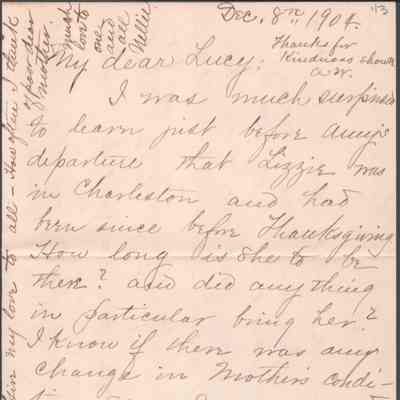 Dec. 8th 1904.
113
Thanks for
Kindness shown
A. W.
My dear Lucy:
I was much surprised
to learn just before Amy's
departure that Lizzie was
in Charleston and had
been since before Thanksgiving
How long is she to be
there? and did anything
in particular bring her?
I know if there was any
change in Mother's condi-
much
love to
one
and
all
Nellie
my love to all - How often I think
of you dear
Mother.